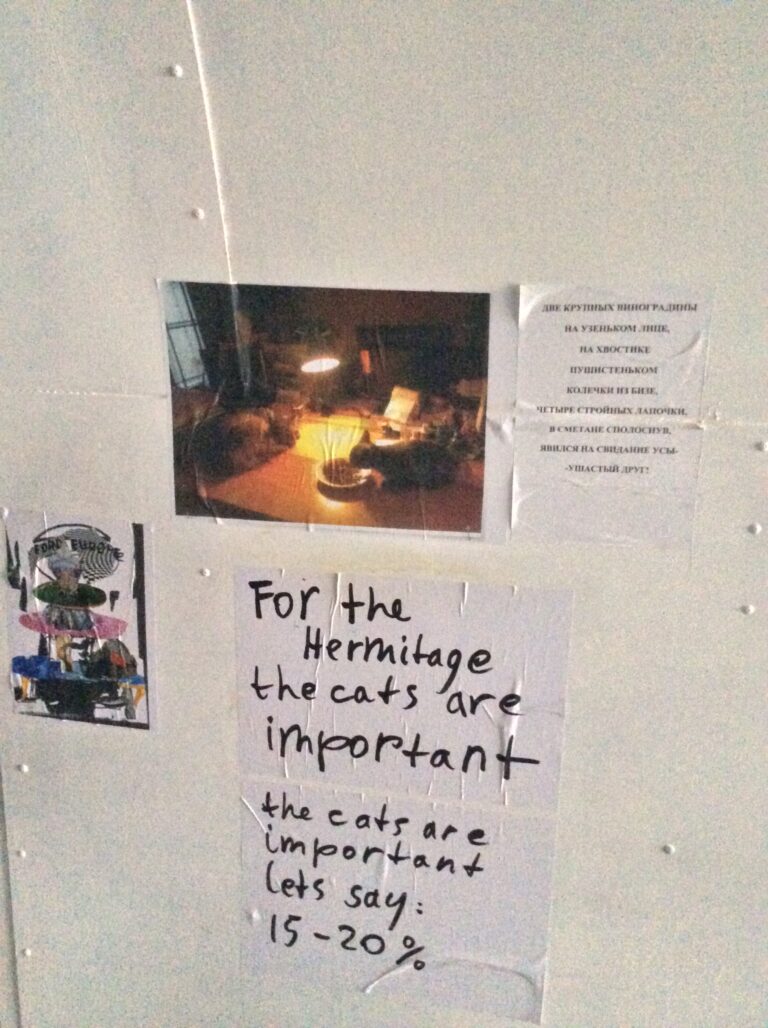 ДВЕ КРУПНЫХ ВИНОГРАДИНЫ
НА УЗЕНЬКОМ ЛИЦЕ,
НА ХВОСТИКЕ
ПУШИСТЕНЬКОМ
КОЛЕЧКИ ИЗ БИЗЕ,
ЧЕТЫРЕ СТРОЙНЫХ ЛАПОЧКИ,
В СМЕТАНЕ СПОЛОСНУВ,
ЯВИЛСЯ НА СВИДАНИЕ УСЫ-
-УШАСТЫЙ ДРУГ!
EUROPE
For the
Hermitage
the cats are
important
the cats are
important
lets say:
15-20%